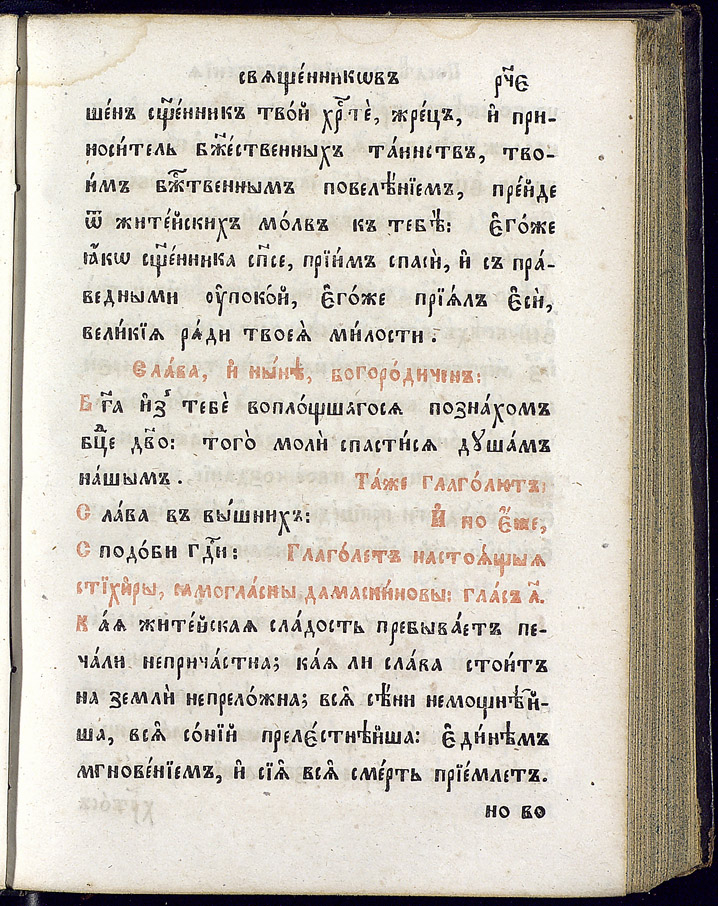 свѧще́нникѡвъ рч҃є
ше́нъ сщ҃е́нникъ тво́й хрⷭ҇тѐ, жре́цъ, и҆ при-
носи́тель бж҃е́ственныхъ та́инствъ, тво-
и́мъ бжⷭ҇твеннымъ повелѣ́нїемъ, пре́йде
ѿ жите́йскихъ мо́лвъ къ тебѣ̀: є҆го́же
ꙗ҆́кѡ сщ҃е́нника сп҃се, прїи́мъ спасѝ, и҆ съ пра́-
ведными ᲂу҆поко́й, є҆го́же прїѧ́лъ є҆сѝ,
вели́кїѧ ра́ди твоеѧ̀ ми́лости.
Сла́ва, и҆ ны́нѣ, богоро́диченъ:
Бг҃а и҆зъ тебѐ вопло́щшагосѧ позна́хомъ
бцⷣе дв҃о: того̀ молѝ спасти́сѧ дꙋша́мъ
на́шымъ. Та́же глаго́лютъ:
Сла́ва въ вы́шнихъ: И҆ по є҆́же,
Сподо́би гдⷭ҇и: Глаго́летъ настоѧ́щыѧ
стїхи̑ры, самогла́сны дамаски́новы: гла́съ а҃.
Ка́ѧ жите́йскаѧ сла́дость пребыва́етъ пе-
ча́ли неприча́стна; ка́ѧ ли сла́ва стои́тъ
на землѝ непрело́жна; всѧ̑ сѣ́ни немощнѣ́й-
ша, всѧ̑ со́нїй преле́стнѣйша: є҆ди́нѣмъ
мгнове́нїемъ, и҆ сїѧ̑ всѧ̑ сме́рть прїе́млетъ.
но во